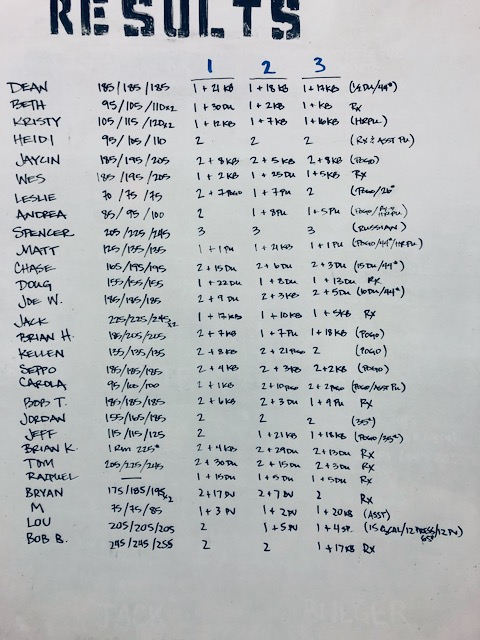 RESULTS
1 2 3
DEAN 185/185/185 1+21KB 1+18KB 1+17KB (½DU/44")
BETH 95/105/110x2 1+30DU 1+2KB 1+KB Rx
KRISTY 105/115/120x2 1+12KB 1+7KB 1+16KB (HRPU)
HEIDI 95/105/110 2 2 2 (Rx & ASST PU)
JAYLIN 185/195/205 2+8KB 2+5KB 2+8KB (POGO)
WES 185/195/205 1+2KB 1+25DU 1+5KB Rx
LESLIE 70/75/75 2+7POGO 1+7PU 2 (POGO/26"
ANDREA 85/95/100 2 1+8PU 1+5PU
SPENCER 205/225/245 3 3 3 (RUSSIAN)
MATT 125/135/135 1+1PU 1+21KB 1+1PU (POGO/44"/HRPU)
CHASE 165/195/195 2+15DU 2+6DU 2+3DU (15DU/44")
DOUG 155/155/155 1+22DU 1+2DU 1+13DU Rx
JOE W. 185/185/185 2+9DU 2+3KB 2+5DU (10DU/44")
JACK 225/225/245x2 1+17KB 1+10KB 1+5KB Rx
BRIAN H. 185/205/205 2+7KB 1+7PU 1+18KB (POGO)
KELLEN 135/135/135 2+8KB 2+21POGO 2 (POGO)
SEPPO 185/185/185 2+4KB 2+3KB 2+2KB (POGO)
CAROLA 95/100/100 2+1KB 2+10POGO 2+2POGO (POGO/ASST PU)
BOB T. 185/185/185 2+6KB 2+3DU 1+9PU Rx
JORDAN 155/165/185 2 2 2 (35#)
JEFF 115/115/125 2 1+21KB 1+18KB (POGO/35#)
BRIAN K. 1RM 225# 2+4KB 2+29DU 2+13DU Rx
TOM 205/225/245 2+30DU 2+15DU 2+3DU Rx
— 1+15DU 1+5DU 1+5DU Rx
BRYAN 175/185/195x2 2+17DU 2+7DU 2 Rx
M 75/75/85 1+3PU 1+2PU 1+20KB (ASST)
LOU 205/205/205 2 1+5PU 1+4SP.
BOB B. 245/245/255 2 2 1+17KB Rx